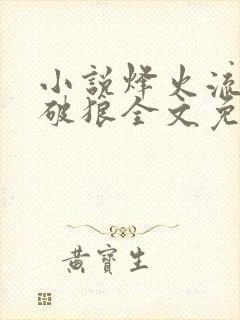 小說烽火流
破狼全文免
黃寶生